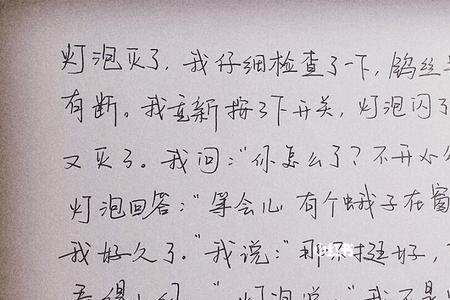 灯泡灭了，我仔细检查了一下，鸽丝
有断。我重新按了下开关，灯泡闪了
又灭了。我问：“你怎么了？不开心
灯泡回答：“等会儿有个蛾子在窗
我好久了。”我说：“那不挺好，
灯泡说：“我不是